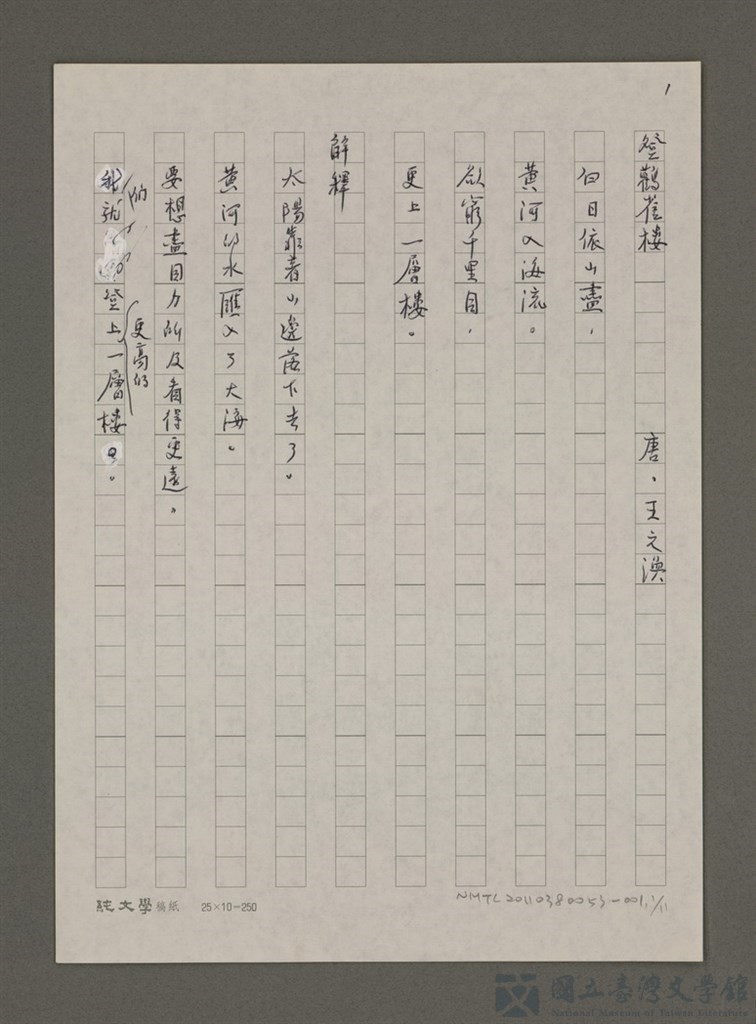 1
登鸛雀樓 唐．王之渙
白日依山盡，
黃河入海流。
欲窮千里目，
更上一層樓。
解釋
太陽靠著山邊落下去了。
黃河的水匯入了大海。
要想盡目力所及看得更遠。
我們就
登上更高的一層樓。
純文學稿紙 25×10=250
NMTL20110380053-001, 1/11
國立臺灣文學館
National Museum of Taiwan Literature